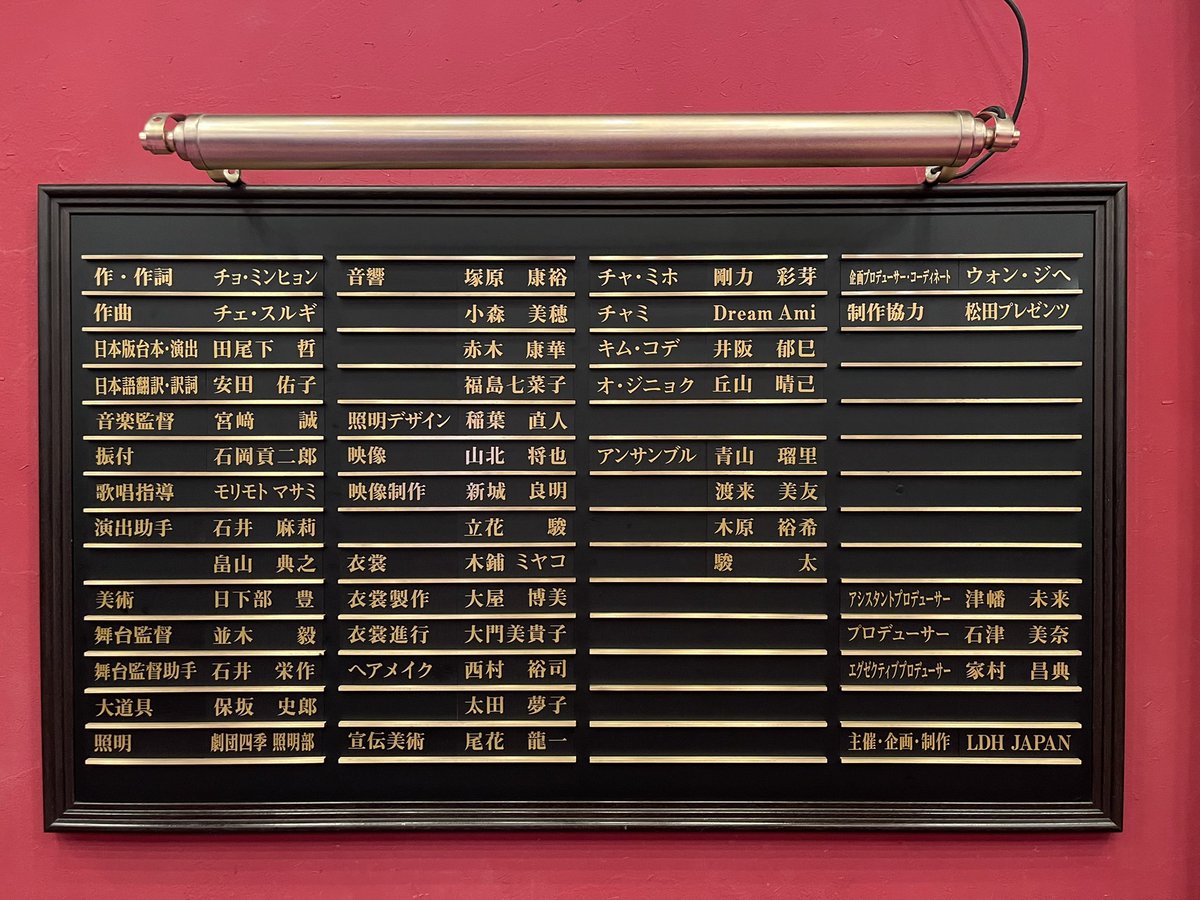 作・作詞 チョ・ミンヒョン
作曲 チェ・スルギ
日本版台本・演出 田尾下 哲
日本語翻訳・訳詞 安田 佑子
音楽監督 宮﨑 誠
振付 石岡貢二郎
歌唱指導 モリモト マサミ
演出助手 石井 麻莉
畠山 典之
美術 日下部 豊
舞台監督 並木 毅
舞台監督助手 石井 栄作
大道具 保坂 史郎
照明 劇団四季 照明部
音響 塚原 康裕
小森 美穂
赤木 康華
福島七菜子
照明デザイン 稲葉 直人
映像 山北 将也
映像制作 新城 良明
立花 駿
衣裳 木鋪 ミヤコ
衣裳製作 大屋 博美
衣裳進行 大門美貴子
ヘアメイク 西村 裕司
太田 夢子
宣伝美術 尾花 龍一
チャ・ミホ 剛力 彩芽
チャミ Dream Ami
キム・コデ 井阪 郁巳
オ・ジニョク 丘山 晴己
アンサンブル 青山 瑠里
渡来 美友
木原 裕希
駿 太
企画プロデューサー・コーディネート ウォン・ジヘ
制作協力 松田プレゼンツ
アシスタントプロデューサー 津幡 未来
プロデューサー 石津 美奈
エグゼクティブプロデューサー 家村 昌典
主催・企画・制作 LDH JAPAN